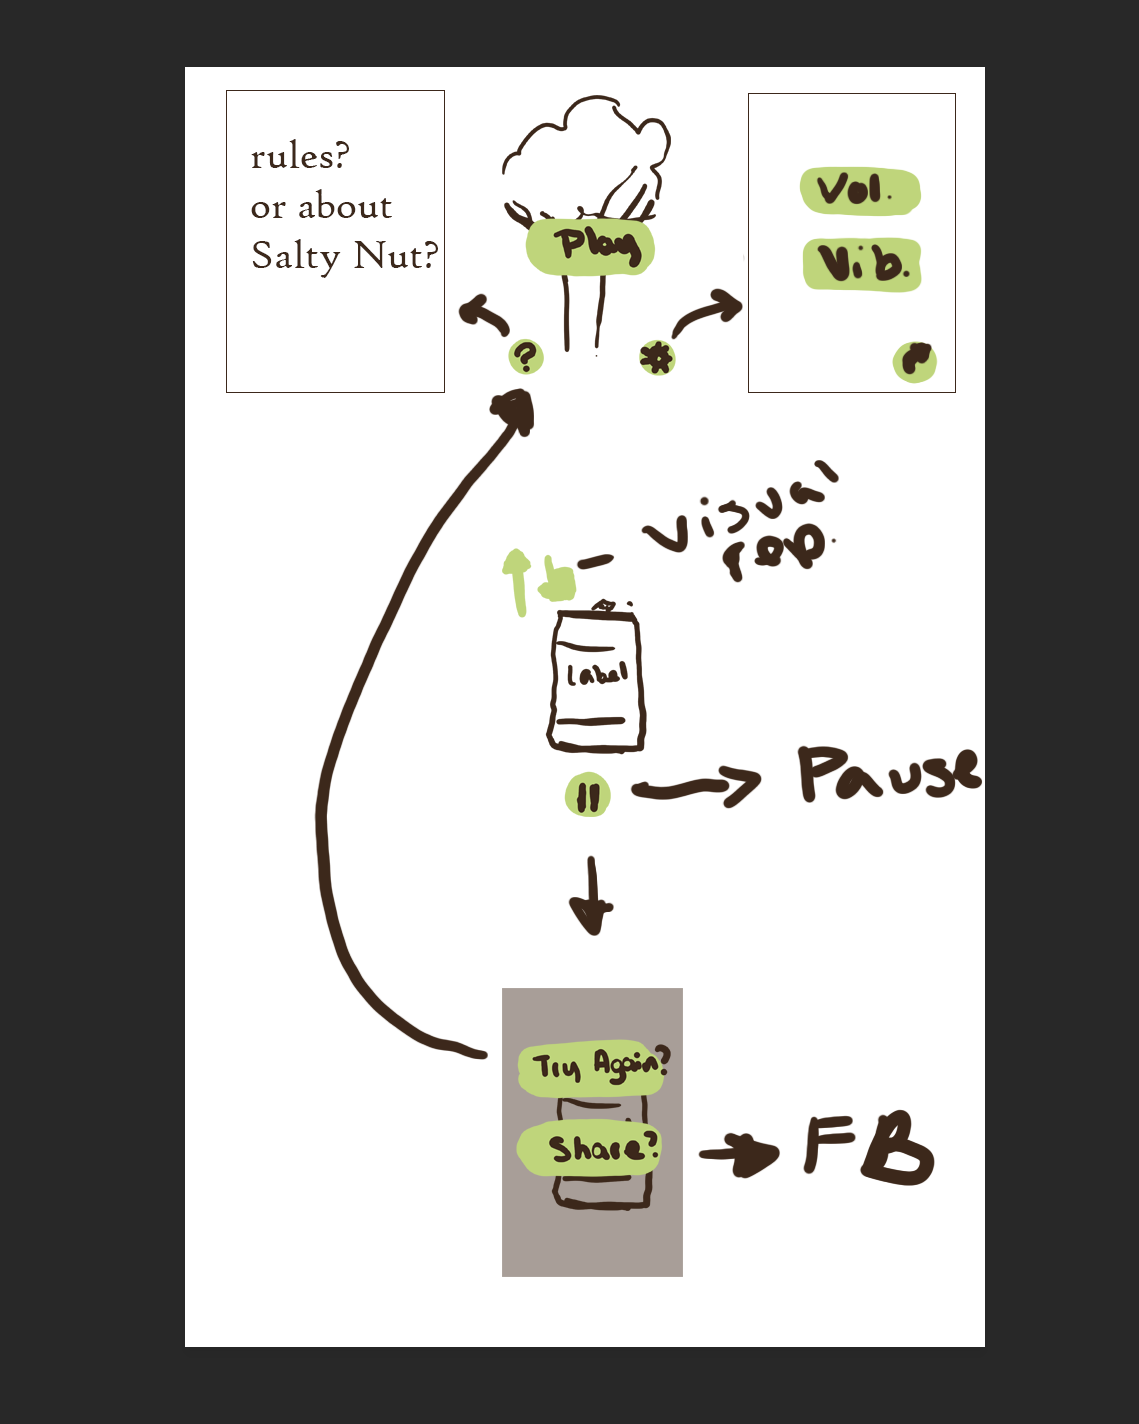 rules?
or about
Salty Nut?
Play
?
Vol.
Vib.
Visual
rep.
Label
Pause
Try Again?
Share?
FB